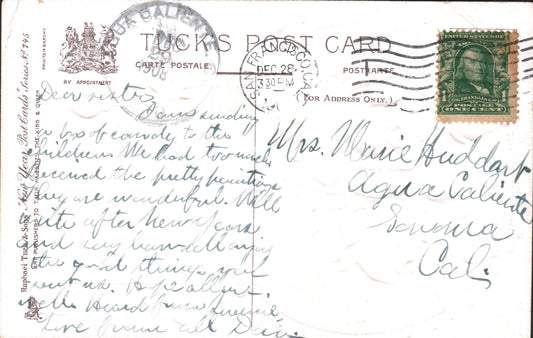 TUCK'S POST CARD
CARTE POSTALE
POSTKARTE
BY APPOINTMENT
(FOR ADDRESS ONLY.)
AGUA CALIENTE
1908
SAN FRANCISCO, CAL.
DEC 28
3 30 PM
ONE CENT
Raphael Tuck & Sons' "New Year" Post Cards Series No 745
ART PUBLISHERS TO THEIR MAJESTIES THE KING & QUEEN
Dear sister
I am sending
a box of candy to the
children. We had too much
the pretty
they are wonderful. Will
write after New Years.
and say
the good things you
sent us. Hope all are
well. Heard from
Love from all
Mrs. Marie Huddart
Agua Caliente
Sonoma
Cal.